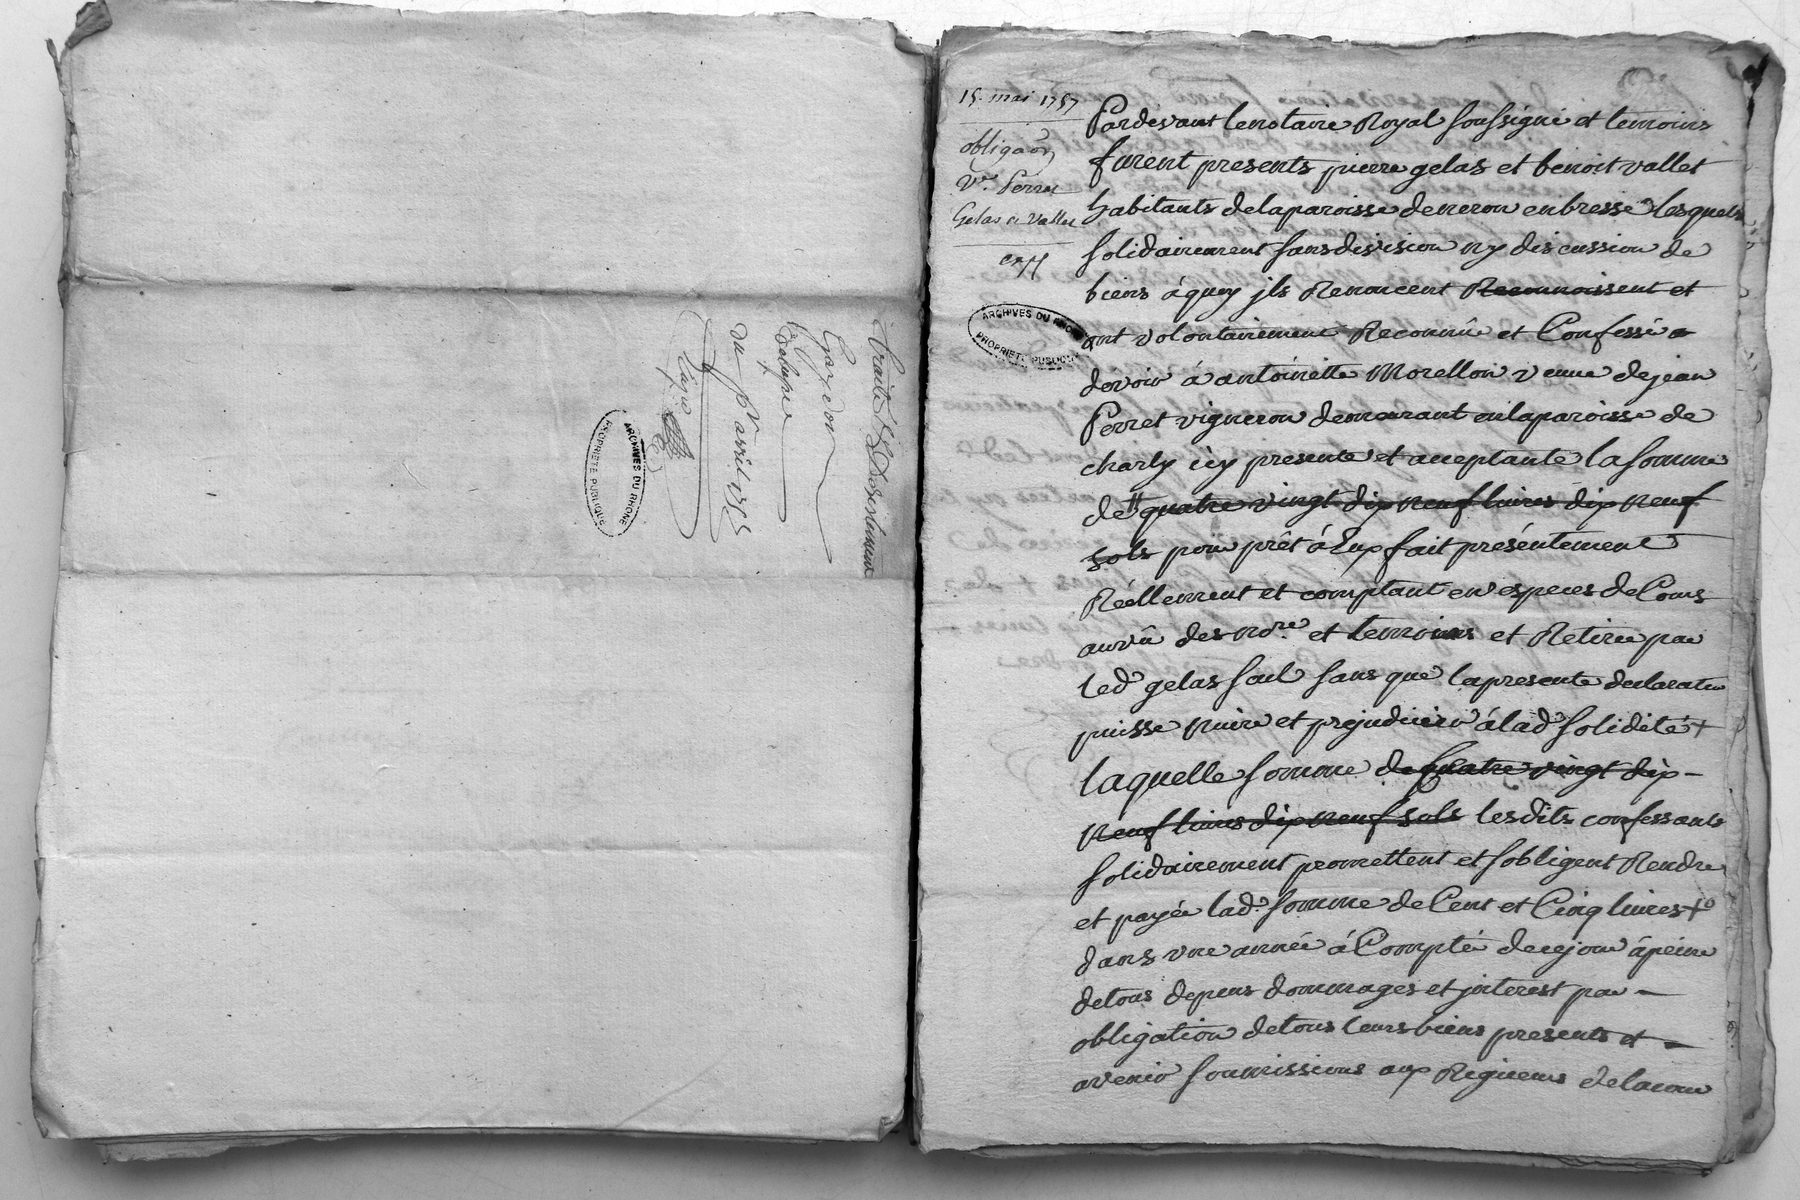 Traité & Desistement
Gayedon
du pr. avril 1755
ARCHIVES DU RHONE
PROPRIETE PUBLIQUE
15. mai 1757
obligaon
Ve. Perret
Gelas & Vallet
ARCHIVES DU RHONE
PROPRIETE PUBLIQUE
Pardevant le notaire Royal soussigné et temoins
furent presents pierre gelas et benoist vallet
habitants de la paroisse de neron en bresse lesquels
solidairement sans division ny discussion de
biens à quoy jls Renoncent Reconnoissent et
ont volontairement Reconnû et Confessé
devoir à antoinette Morellon veuve de jean
Perret vigneron demeurant en la paroisse de
charly icy presente et acceptante la somme
de quatre vingt dix neuf livres dix neuf
sols pour prêt à Eux fait présentement
Réellement et comptant en especes de Cours
au vû des nore. et temoins et Retirée par
led gelas seul sans que la presente declaration
puisse nuire et prejudicier à lad solidité +
laquelle somme de quatre vingt dix
neuf livres dix neuf sols lesdits confessants
solidairement promettent et sobligent Rendre
et payée lad. somme de Cent et Cinq livres +
dans une année à Compter de ce jour à peine
de tous depens dommages et jnterest par
obligation de tous leurs biens presents et
avenir soumissions aux Rigueurs de la cour